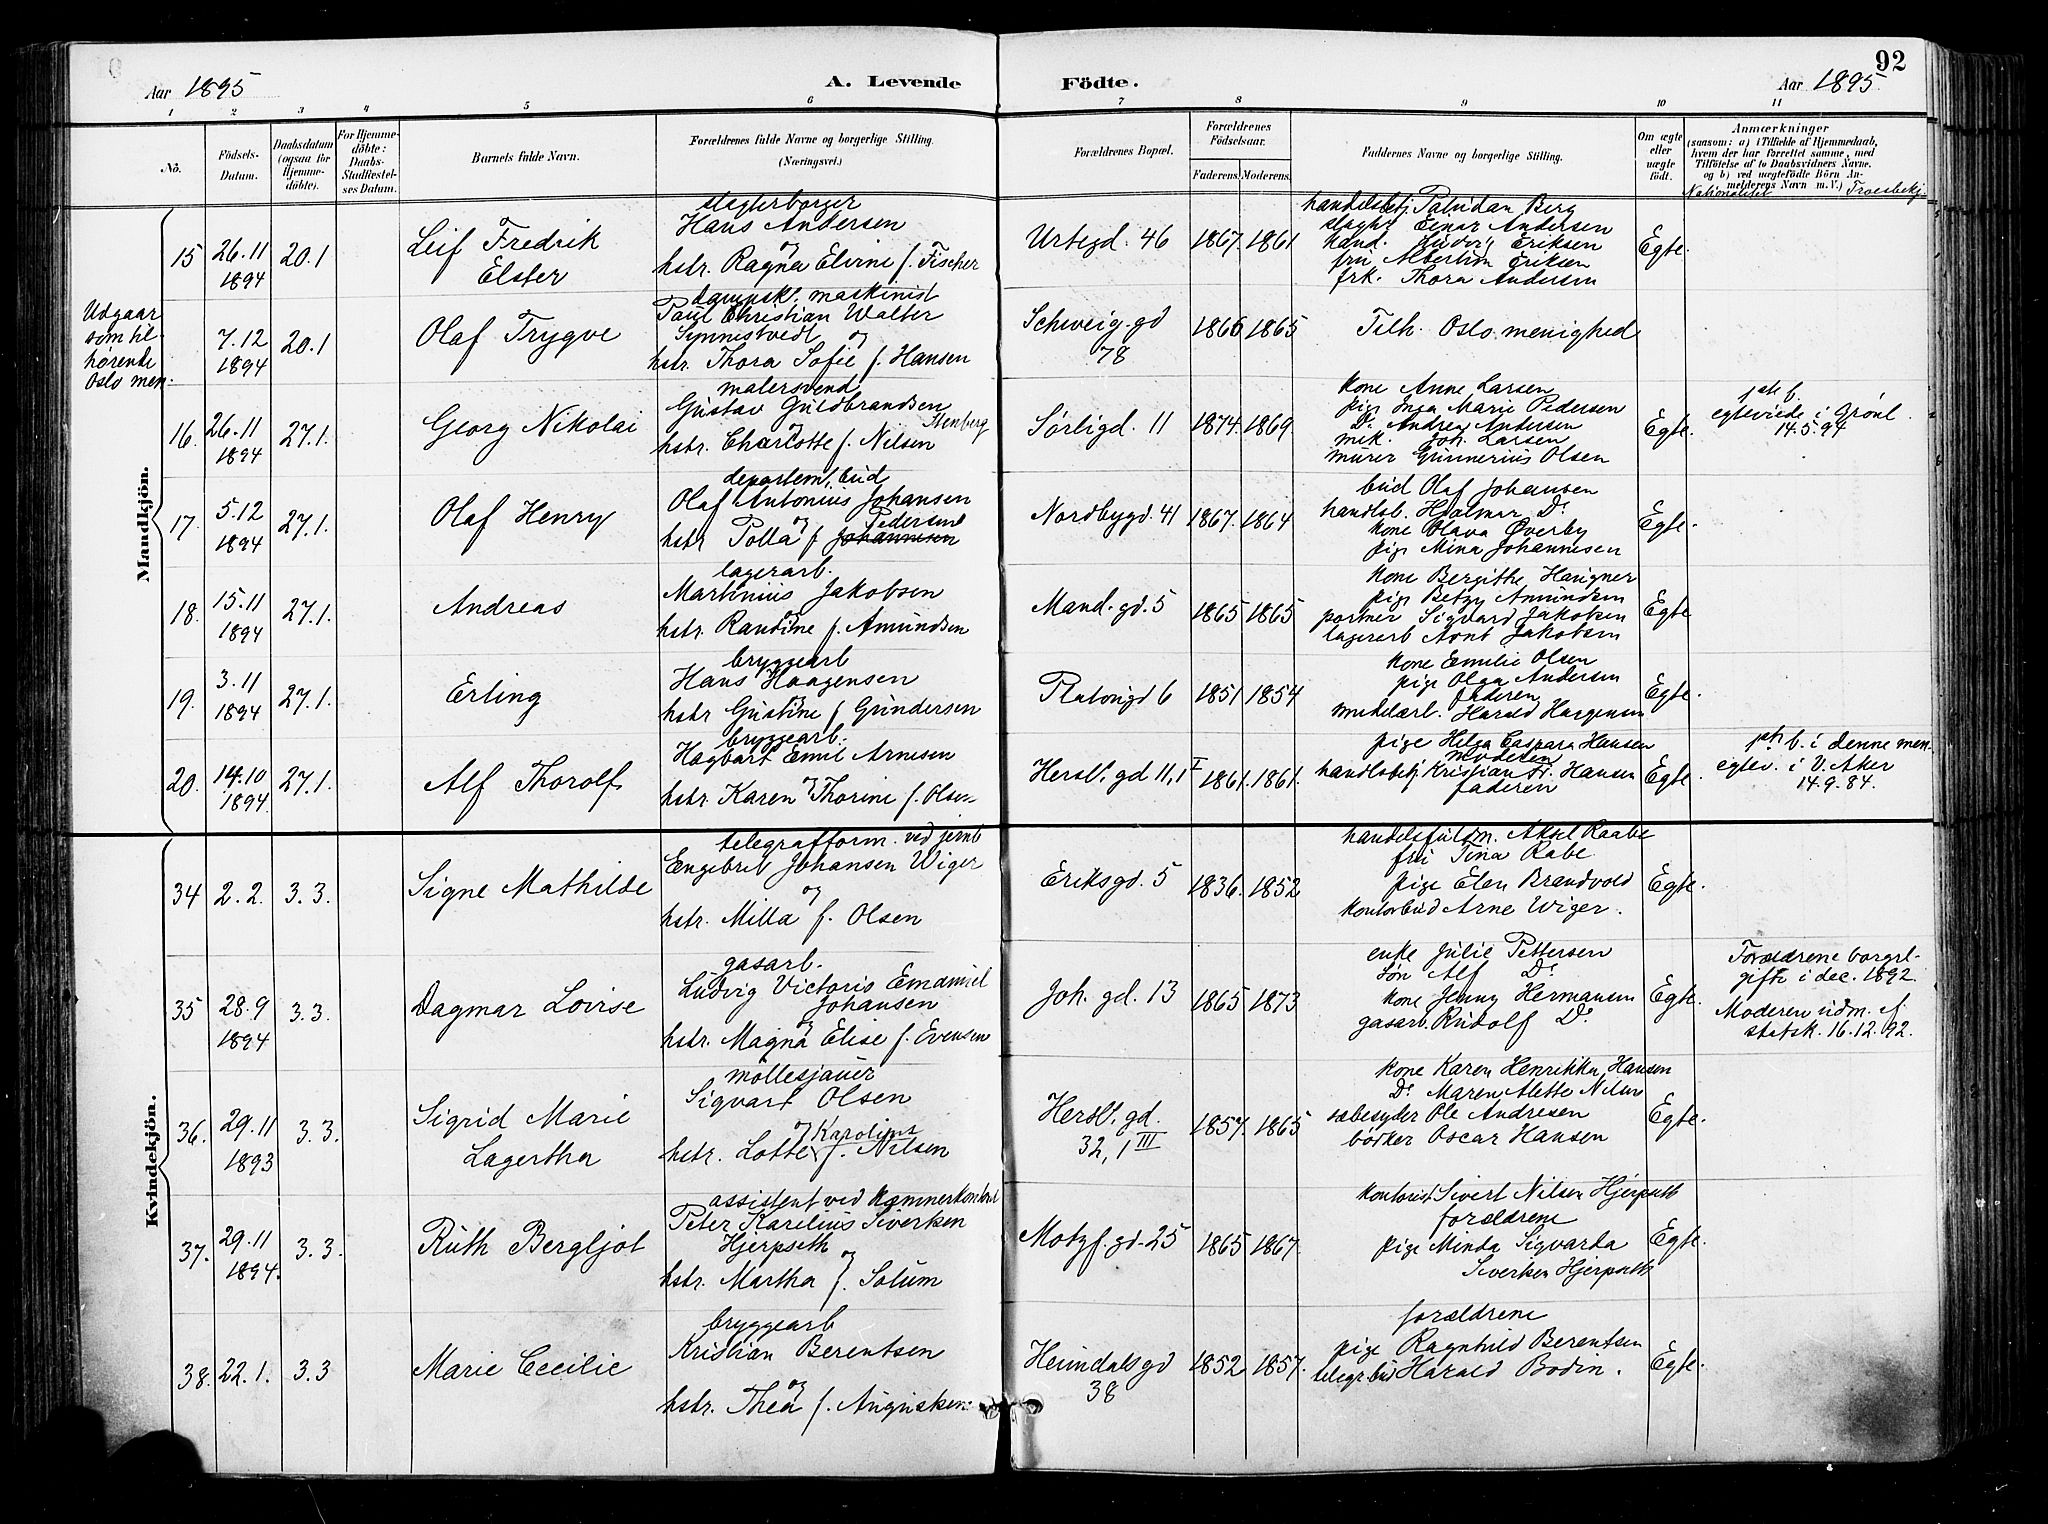 92
Aar 1895
A. Levende
Födte.
Aar 1895.
1 2 3 4 5 6 7 8 9 10 11
No.
Födsels-
Datum.
Daabsdatum
(ogsaa for
Hjemme-
döbte).
For Hjemme-
döbte:
Daabs-
Stadfæstel-
ses Datum.
Barnets fulde Navn.
Forældrenes fulde Navne og borgerlige Stilling.
(Næringsvei.)
Forældrenes Bopæl.
Forældrenes
Födselsaar.
Faderens. Moderens.
Faddernes Navne og borgerlige Stilling.
Om ægte
eller
uægte
födt.
Anmærkninger
(saasom: a) i Tilfælde af Hjemmedaab,
hvem der har forrettet samme, med
Tilföielse af to Daabsvidners Navne.
og b) ved uægtefödte Börn An-
melderens Navn m. V.)
Nationalitet Troesbekj.
Mandkjön.
15
26.11
1894
20.1
Leif Fredrik
Elster
slagterborger
Hans Andersen
og
hstr. Ragna Elvine f. Fischer
Urtegd. 46
1867. 1861
handelsbetj. Paludan Berg
slagter Einar Andersen
hand. Ludvig Eriksen
fru Albertine Eriksen
frk. Thora Andersen
Egte.
Udgaar
som til-
hørende
Oslo men.
7.12
1894
20.1
Olaf Trygve
dampsk. maskinist
Paul Christian Walter
Synnestvedt og
hstr. Thora Sofie f. Hansen
Schweig. gd
78
1866 1865
Tilh. Oslo menighed
16.
26.11
1894
27.1.
Georg Nikolai
malersvend
Gustav Guldbrandsen
Stenberg
og
hstr. Charlotte f. Nilsen
Sørligd. 11
1874. 1869.
kone Anne Larsen
pige Inga Marie Pedersen
Do. Andrea Andersen
mek. Joh. Larsen
murer Gunnerius Olsen
Egte.
1ste b.
egteviede i Grønl.
14.5.94
17.
5.12
1894
27.1.
Olaf Henry
departem. bud
Olaf Antonius Johansen
og Pedersen
hstr Polla f Johannesen
Nordbygd. 41
1867. 1864
bud Olaf Johansen
handlsb. Hjalmar Do.
kone Olava Øverby
pige Mina Johannesen
Egte.
18.
15.11
1894
27.1.
Andreas
lagerarb.
Martinius Jakobsen
og
hstr. Randine f. Amundsen
Mand. gd. 5
1865 1865
kone Bergithe
pige Betzy Amundsen
portner Sigvard Jakobsen
lagerarb Arnt Jakobsen
Egte
19.
3.11
1894
27.1.
Erling
bryggearb
Hans Haagensen
og
hstr Gustine f Gundersen
Platougd 6
1851 1854
kone Emilie Olsen
pige Olga Andersen
faderen
Harald Haagensen
Egte.
20.
14.10
1894.
27.1.
Alf Thorolf
bryggearb.
Hagbart Emil Arnesen
og
hstr. Karen Thorine f. Olsen
Hersl. gd 11, 1 I
1861. 1861.
pige Helga Caspara Hansen
moderen
handlsbetj Kristian Fr. Hansen
faderen
Egte.
1ste b. i denne men.
egtev. i V. Aker
14.9.84.
Kvindekjön.
34
2.2.
3.3.
Signe Mathilde
telegrafform. ved jernb
Engebret Johansen Wiger
og
hstr. Milla f. Olsen
Eriksgd. 5
1836. 1852
handelsfuldm. Aksel Raabe
fru Tina Rabe
pige Elen Brandvold
kontorbud Arne Wiger.
Egte.
35
28.9
1894
3.3.
Dagmar Lovise
gasarb.
Ludvig Victoris Emanuel
Johansen
og
hstr. Magna Elise f. Evensen
Joh. gd. 13
1865 1873
enke Julie Pettersen
søn Alf Do.
kone Jenny Hermansen
gasarb. Rudolf Do.
Egte.
Forældrene borgrl-
gifte i dec. 1892.
Moderen udm. af
statsk. 16.12.92.
36.
29.11
1893
3.3.
Sigrid Marie
Lagertha
møllesjauer
Sigvart Olsen
og Karoline
hstr. Lotte f. Nilsen
Hersl. gd.
32, 1 III
1857. 1865
kone Karen Henrikka Hansen
Do. Maren Alette Nilsen
sæbesyder Ole Andresen
bødker Oscar Hansen
Egte.
37.
29.11
1894.
3.3.
Ruth Bergljot
assistent ved Kæmnerkontoret
Peter Karelius Siversen
Hjerpseth
og
hstr. Martha f. Solum
Motzf. gd. 25
1865 1867.
kontorist Sivert Nilsen Hjerpseth
forældrene
pige Minda Sigvarda
Siversen Hjerpseth
Egte.
38.
22.1.
3.3
Marie Cecilie
bryggearb
Kristian Berentsen
og
hstr. Thea f. Augustsen.
Heimdalsgd
38
1852 1857.
forældrene
pige Ragnhild Berentsen
telegr. bud Harald Bodin.
Egte.